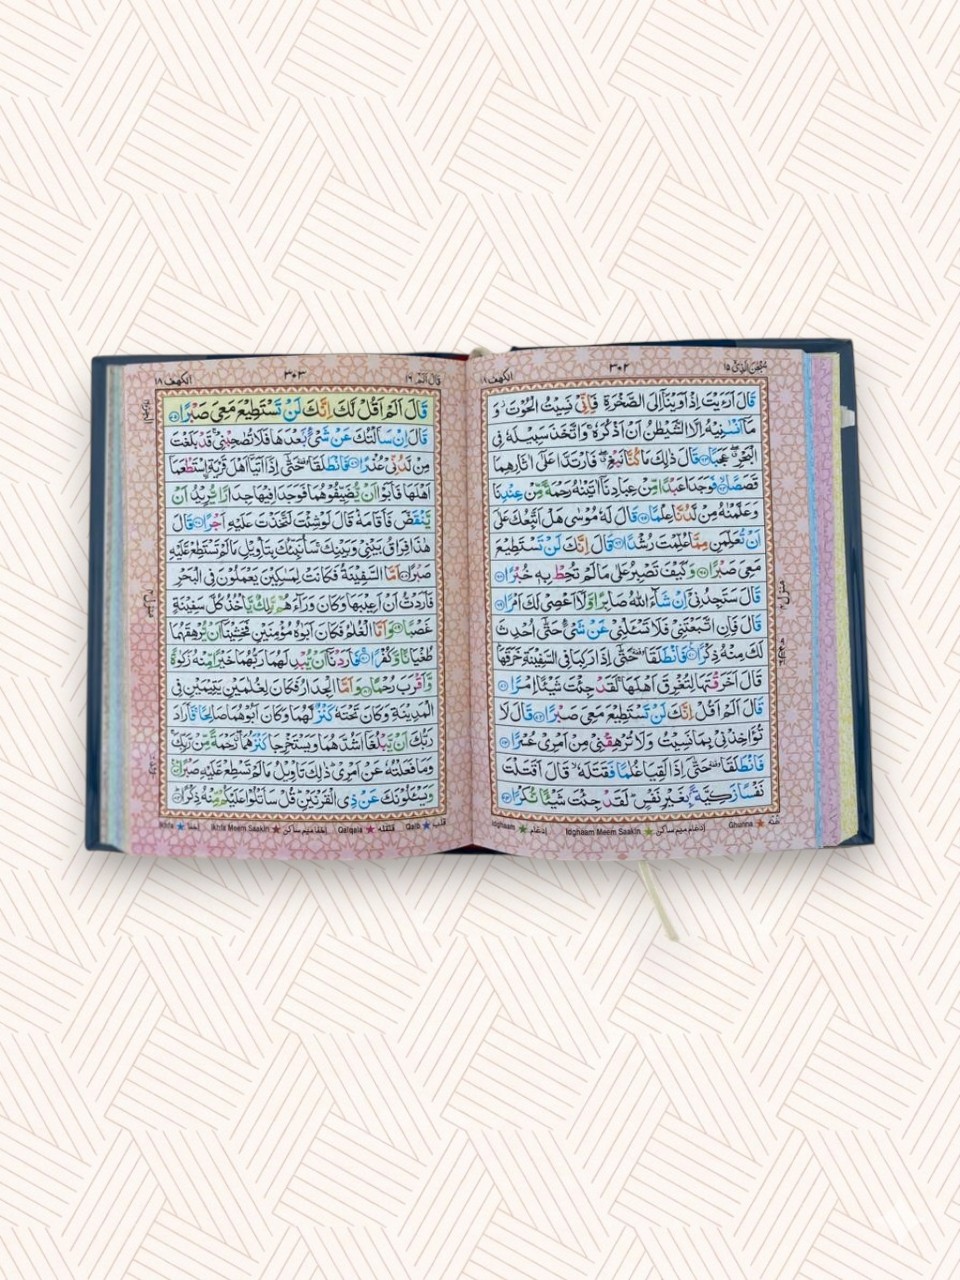 سُبْحٰنَ الَّذِيْٓ ١٥
٣٠٢
الكهف ١٨
قَالَ اَرَءَيْتَ اِذْ اَوَيْنَآ اِلَى الصَّخْرَةِ فَاِنِّيْ نَسِيْتُ الْحُوْتَ ۡ وَ
مَآ اَنْسٰىنِيْهُ اِلَّا الشَّيْطٰنُ اَنْ اَذْكُرَهٗ ۚ وَاتَّخَذَ سَبِيْلَهٗ فِي
الْبَحْرِ ۖ عَجَبًا ﴿٦٣﴾ قَالَ ذٰلِكَ مَا كُنَّا نَبْغِ ۖ فَارْتَدَّا عَلٰٓى اٰثَارِهِمَا
قَصَصًا ﴿٦٤﴾ فَوَجَدَا عَبْدًا مِّنْ عِبَادِنَآ اٰتَيْنٰهُ رَحْمَةً مِّنْ عِنْدِنَا
وَعَلَّمْنٰهُ مِنْ لَّدُنَّا عِلْمًا ﴿٦٥﴾ قَالَ لَهٗ مُوْسٰى هَلْ اَتَّبِعُكَ عَلٰٓى
اَنْ تُعَلِّمَنِ مِمَّا عُلِّمْتَ رُشْدًا ﴿٦٦﴾ قَالَ اِنَّكَ لَنْ تَسْتَطِيْعَ
مَعِيَ صَبْرًا ﴿٦٧﴾ وَكَيْفَ تَصْبِرُ عَلٰى مَا لَمْ تُحِطْ بِهٖ خُبْرًا ﴿٦٨﴾
قَالَ سَتَجِدُنِيْٓ اِنْ شَآءَ اللّٰهُ صَابِرًا وَّلَآ اَعْصِيْ لَكَ اَمْرًا ﴿٦٩﴾
قَالَ فَاِنِ اتَّبَعْتَنِيْ فَلَا تَسْـَٔلْنِيْ عَنْ شَيْءٍ حَتّٰٓى اُحْدِثَ
لَكَ مِنْهُ ذِكْرًا ﴿٧٠﴾ فَانْطَلَقَا ۥ حَتّٰٓى اِذَا رَكِبَا فِي السَّفِيْنَةِ خَرَقَهَا
قَالَ اَخَرَقْتَهَا لِتُغْرِقَ اَهْلَهَا ۚ لَقَدْ جِئْتَ شَيْـًٔا اِمْرًا ﴿٧١﴾
قَالَ اَلَمْ اَقُلْ اِنَّكَ لَنْ تَسْتَطِيْعَ مَعِيَ صَبْرًا ﴿٧٢﴾ قَالَ لَا
تُؤَاخِذْنِيْ بِمَا نَسِيْتُ وَلَا تُرْهِقْنِيْ مِنْ اَمْرِيْ عُسْرًا ﴿٧٣﴾
فَانْطَلَقَا ۥ حَتّٰٓى اِذَا لَقِيَا غُلٰمًا فَقَتَلَهٗ ۙ قَالَ اَقَتَلْتَ
نَفْسًا زَكِيَّةً ۢ بِغَيْرِ نَفْسٍ ۭ لَقَدْ جِئْتَ شَيْـًٔا نُّكْرًا ﴿٧٤﴾
Ghunna غنّه
Idghaam Meem Saakin ادغام ميم ساكن
Idghaam ادغام
قَالَ اَلَمْ ١٦
٣٠٣
الكهف ١٨
قَالَ اَلَمْ اَقُلْ لَّكَ اِنَّكَ لَنْ تَسْتَطِيْعَ مَعِيَ صَبْرًا ﴿٧٥﴾
قَالَ اِنْ سَاَلْتُكَ عَنْ شَيْءٍ ۢ بَعْدَهَا فَلَا تُصٰحِبْنِيْ ۚ قَدْ بَلَغْتَ
مِنْ لَّدُنِّيْ عُذْرًا ﴿٧٦﴾ فَانْطَلَقَا ۥ حَتّٰٓى اِذَآ اَتَيَآ اَهْلَ قَرْيَةِ ۨ اسْتَطْعَمَآ
اَهْلَهَا فَاَبَوْا اَنْ يُّضَيِّفُوْهُمَا فَوَجَدَا فِيْهَا جِدَارًا يُّرِيْدُ اَنْ
يَّنْقَضَّ فَاَقَامَهٗ ۭ قَالَ لَوْ شِئْتَ لَتَّخَذْتَ عَلَيْهِ اَجْرًا ﴿٧٧﴾ قَالَ
هٰذَا فِرَاقُ بَيْنِيْ وَبَيْنِكَ ۚ سَاُنَبِّئُكَ بِتَاْوِيْلِ مَا لَمْ تَسْتَطِعْ عَّلَيْهِ
صَبْرًا ﴿٧٨﴾ اَمَّا السَّفِيْنَةُ فَكَانَتْ لِمَسٰكِيْنَ يَعْمَلُوْنَ فِي الْبَحْرِ
فَاَرَدْتُّ اَنْ اَعِيْبَهَا وَكَانَ وَرَآءَهُمْ مَّلِكٌ يَّاْخُذُ كُلَّ سَفِيْنَةٍ
غَصْبًا ﴿٧٩﴾ وَاَمَّا الْغُلٰمُ فَكَانَ اَبَوٰهُ مُؤْمِنَيْنِ فَخَشِيْنَآ اَنْ يُّرْهِقَهُمَا
طُغْيَانًا وَّكُفْرًا ﴿٨٠﴾ فَاَرَدْنَآ اَنْ يُّبْدِلَهُمَا رَبُّهُمَا خَيْرًا مِّنْهُ زَكٰوةً
وَّاَقْرَبَ رُحْمًا ﴿٨١﴾ وَاَمَّا الْجِدَارُ فَكَانَ لِغُلٰمَيْنِ يَتِيْمَيْنِ فِي
الْمَدِيْنَةِ وَكَانَ تَحْتَهٗ كَنْزٌ لَّهُمَا وَكَانَ اَبُوْهُمَا صَالِحًا ۚ فَاَرَادَ
رَبُّكَ اَنْ يَّبْلُغَآ اَشُدَّهُمَا وَيَسْتَخْرِجَا كَنْزَهُمَا ۖ رَحْمَةً مِّنْ رَّبِّكَ ۚ
وَمَا فَعَلْتُهٗ عَنْ اَمْرِيْ ۭ ذٰلِكَ تَاْوِيْلُ مَا لَمْ تَسْطِعْ عَّلَيْهِ صَبْرًا ﴿٨٢﴾
وَيَسْـَٔلُوْنَكَ عَنْ ذِي الْقَرْنَيْنِ ۭ قُلْ سَاَتْلُوْا عَلَيْكُمْ مِّنْهُ ذِكْرًا ﴿٨٣﴾
Qalb قلب
Qalqala قلقله
Ikhfa Meem Saakin اخفا ميم ساكن
Ikhfa اخفا